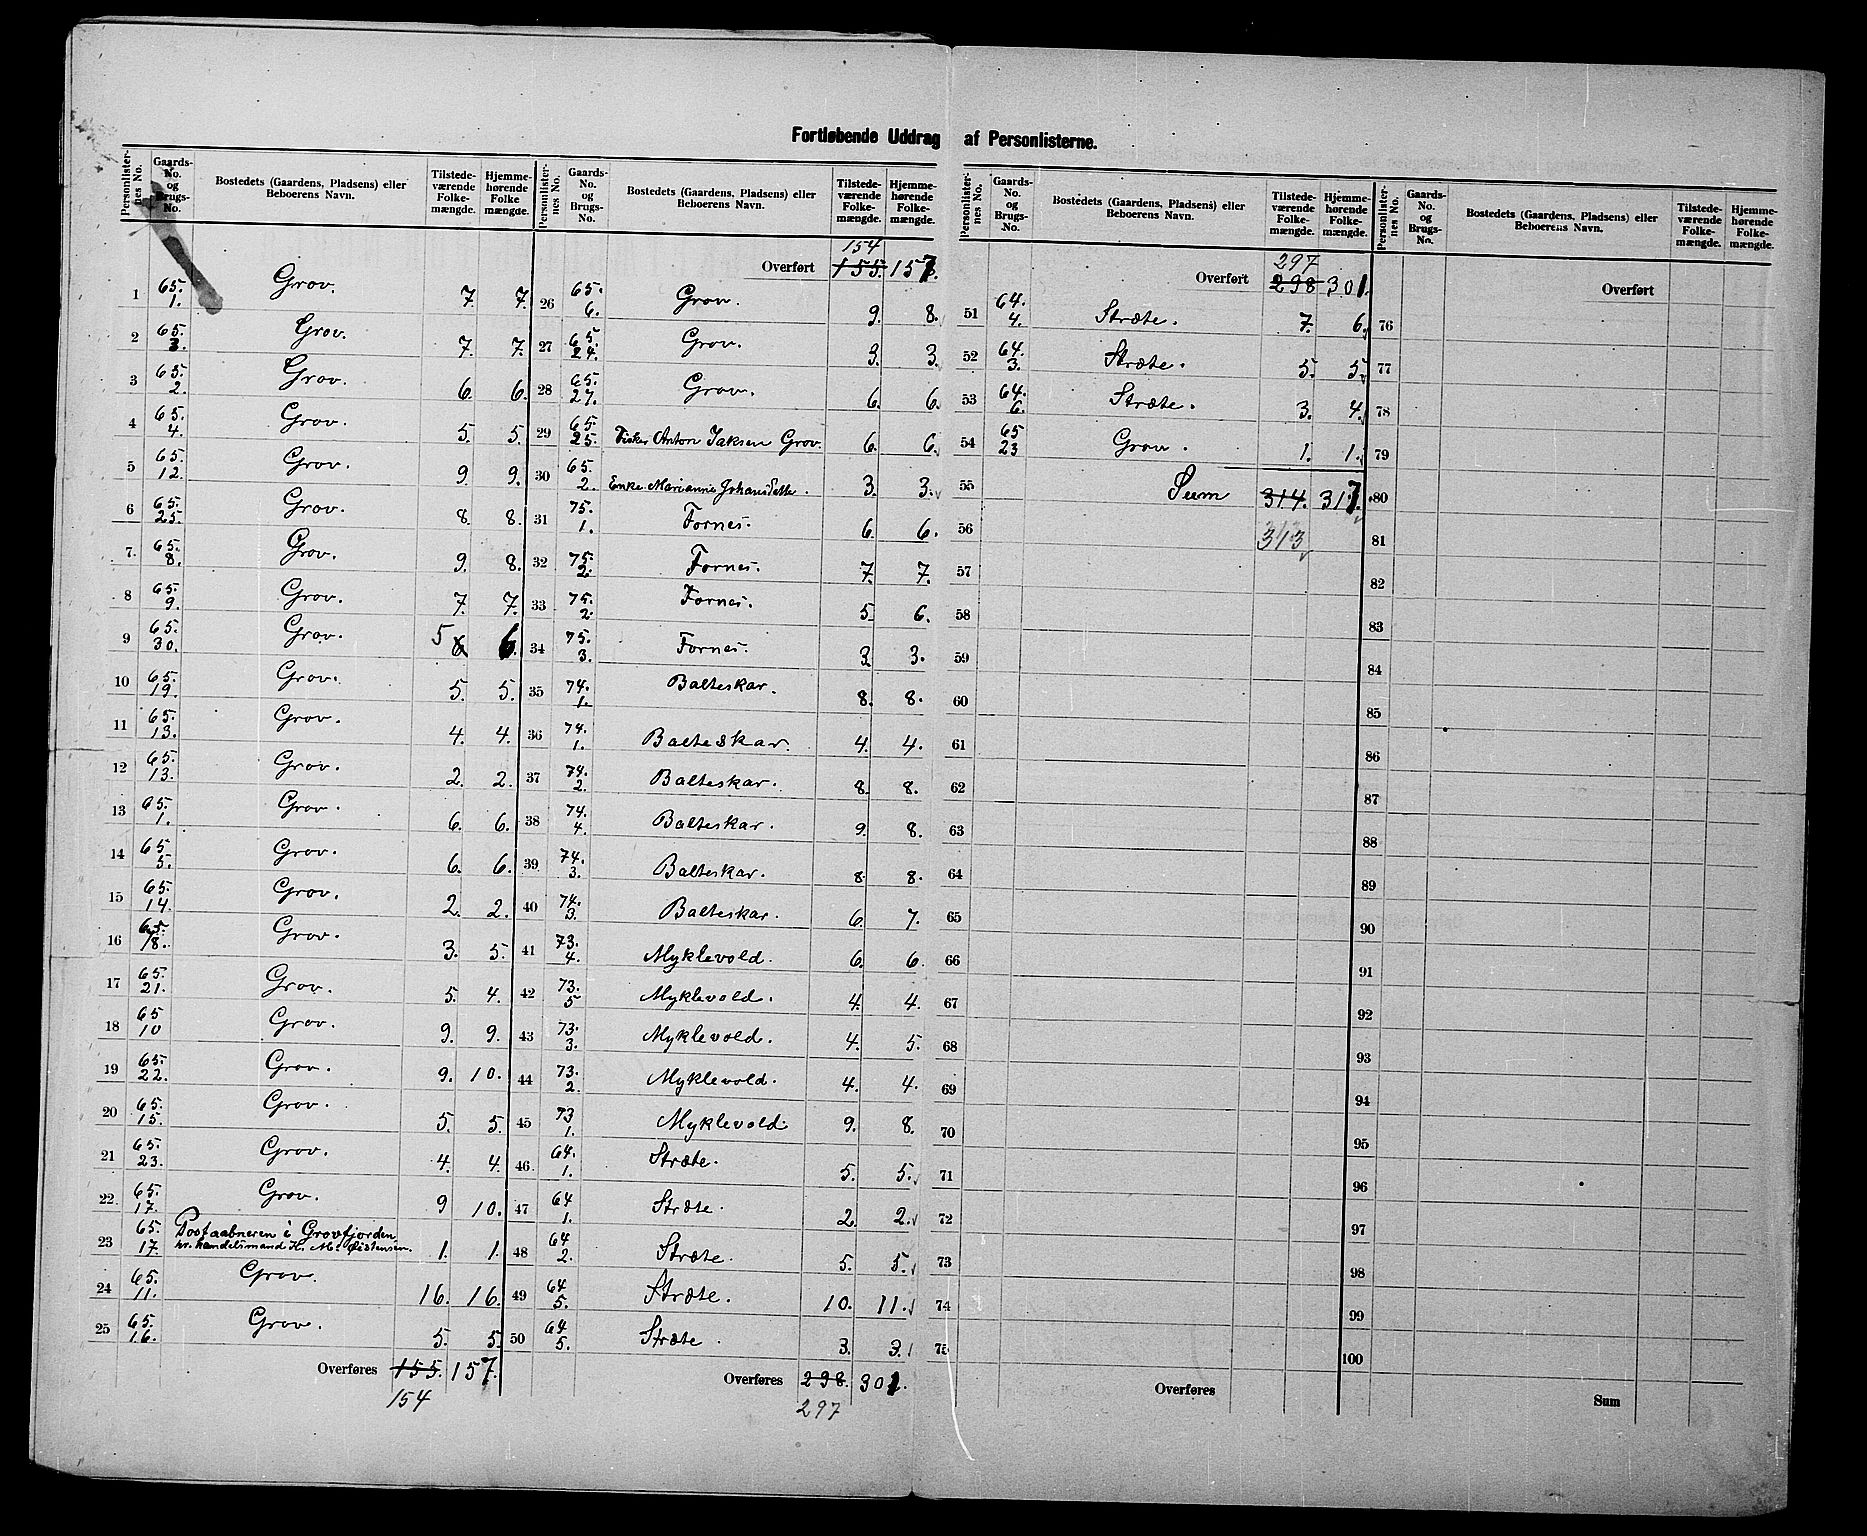 Fortløbende Uddrag af Personlisterne.
Personlister-nes No. | Gaards-No. og Brugs-No. | Bostedets (Gaardens, Pladsens) eller Beboerens Navn. | Tilstede-værende Folke-mængde. | Hjemme-hørende Folke-mængde.
1 | 65. 1. | Grov. | 7. | 7.
2 | 65. 3. | Grov. | 7. | 7.
3 | 65. 2. | Grov. | 6. | 6.
4 | 65. 4. | Grov. | 5. | 5.
5 | 65. 12. | Grov. | 9. | 9.
6 | 65. 25. | Grov. | 8. | 8.
7. | 65. 8. | Grov. | 9. | 8.
8 | 65. 9. | Grov. | 7. | 7.
9 | 65. 30. | Grov. | 5 6 | 6.
10 | 65. 19. | Grov. | 5. | 5.
11 | 65. 13. | Grov. | 4. | 4.
12 | 65. 13. | Grov. | 2. | 2.
13 | 65. 1. | Grov. | 6. | 6.
14 | 65 5. | Grov. | 6. | 6.
15 | 65. 14. | Grov. | 2. | 2.
16 | 65. 18. | Grov. | 3. | 5.
17 | 65. 21. | Grov. | 5. | 4.
18 | 65 10 | Grov. | 9. | 9.
19 | 65. 22. | Grov. | 9. | 10.
20 | 65. 15. | Grov. | 5. | 5.
21 | 65. 23. | Grov. | 4. | 4.
22. | 65. 17. | Grov. | 9 | 10.
23 | 65. 17. | Postaabneren i Grovfjorden hr. handelsmand K. M. Østensen. | 1. | 1.
24 | 65. 11. | Grov. | 16. | 16.
25 | 65. 16. | Grov. | 5. | 5.
Overføres 155. 157.
154
Personlister-nes No. | Gaards-No. og Brugs-No. | Bostedets (Gaardens, Pladsens) eller Beboerens Navn. | Tilstede-værende Folke-mængde. | Hjemme-hørende Folke-mængde.
154
Overført 155. 157.
26 | 65. 6. | Grov. | 9. | 8.
27 | 65. 24. | Grov. | 3. | 3.
28 | 65. 27. | Grov. | 6. | 6.
29 | 65 25. | Fisker Anton Isaksen Grov. | 6. | 6.
30 | 65. 2. | Enke Marianne Johansdatte. | 3. | 3.
31 | 75. 1. | Fornes. | 6. | 6.
32 | 75. 2. | Fornes. | 7. | 7.
33 | 75. 2. | Fornes. | 5. | 6.
34 | 75. 3. | Fornes. | 3. | 3.
35 | 74. 1. | Balteskar. | 8. | 8.
36 | 74. 1. | Balteskar. | 4. | 4.
37 | 74. 2. | Balteskar. | 8. | 8.
38 | 74. 4. | Balteskar. | 9. | 8.
39 | 74. 3. | Balteskar. | 8. | 8.
40 | 74. 3. | Balteskar. | 6. | 7.
41 | 73. 4. | Myklevold. | 6. | 6.
42 | 73. 5 | Myklevold. | 4. | 4.
43 | 73. 3. | Myklevold. | 4. | 5.
44 | 73. 2. | Myklevold. | 4. | 4.
45 | 73 1. | Myklevold. | 9. | 8.
46. | 64. 1. | Stræte. | 5. | 5.
47 | 64 1. | Stræte. | 2. | 2.
48 | 64 2. | Stræte. | 5. | 5.
49 | 64 5. | Stræte. | 10. | 11.
50 | 64 5. | Stræte. | 3. | 3.
Overføres 298. 301.
297
Personlister-nes No. | Gaards-No. og Brugs-No. | Bostedets (Gaardens, Pladsens) eller Beboerens Navn. | Tilstede-værende Folke-mængde. | Hjemme-hørende Folke-mængde.
297
Overført 298 301.
51 | 64. 4. | Stræte. | 7. | 6.
52 | 64. 3. | Stræte. | 5. | 5.
53 | 64. 6. | Stræte. | 3. | 4.
54 | 65 23 | Grov. | 1. | 1.
55 | Sum | 314. | 317.
56 | 313
57
58
59
60
61
62
63
64
65
66
67
68
69
70
71
72
73
74
75
Overføres
Personlister-nes No. | Gaards-No. og Brugs-No. | Bostedets (Gaardens, Pladsens) eller Beboerens Navn. | Tilstede-værende Folke-mængde. | Hjemme-hørende Folke-mængde.
Overført
76
77
78
79
80
81
82
83
84
85
86
87
88
89
90
91
92
93
94
95
96
97
98
99
100
Sum